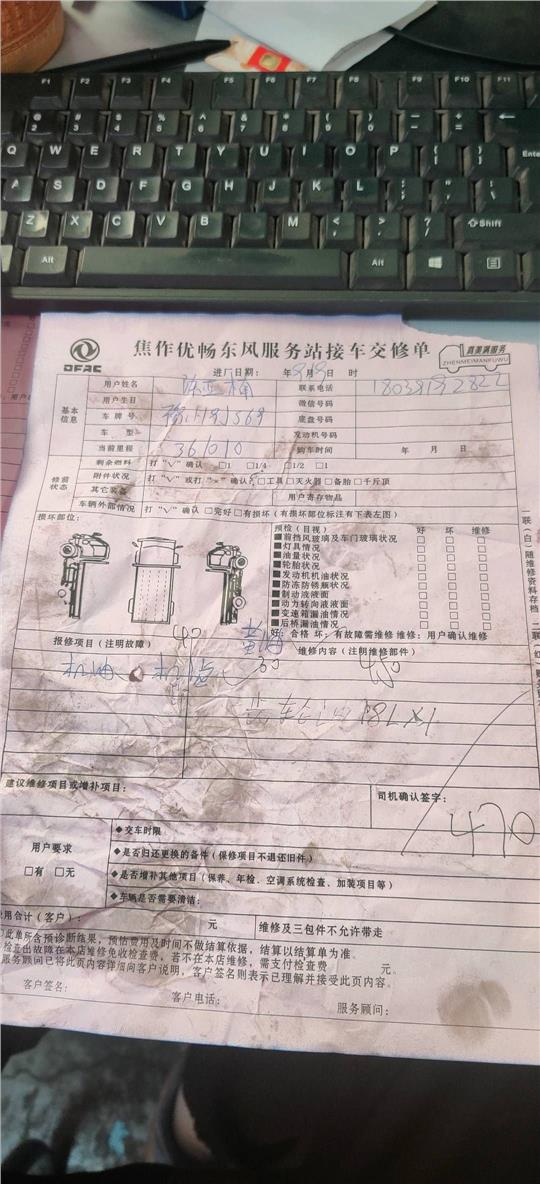 F1 F2 F3 F4 F5 F6 F7 F8 F9 F10 F11
Q W E R T Y U I O P
A S D F G H J K L
Z X C V B M Shift
Alt Alt
DFAC
焦作优畅东风服务站接车交修单
真美满服务
ZHENMEIMANFUWU
进厂日期: 年9月9日 时
基本信息
用户姓名 联系电话
用户生日 微信号码
车牌号 底盘号码
车 型 发动机号码
当前里程 361010 购车时间 年 月 日
修前状态
剩余燃料 打"V"确认 □1 □1/4 □1/2 □1
附件状况 打"V"或打"×"确认 □工具 □灭火器 □备胎 □千斤顶
其它装备 用户寄存物品
车辆外部情况 打"V"确认 □完好 □有损坏(有损坏部位标注有下表左图)
损坏部位:
预检(目视) 好 坏 维修
■前挡风玻璃及车门玻璃状况 □ □ □
■灯具情况 □ □ □
■油量状况 □ □ □
■轮胎状况 □ □ □
■发动机机油状况 □ □ □
■防冻防锈瓶状况 □ □ □
■制动液液面 □ □ □
■动力转向液液面 □ □ □
■变速箱漏油情况 □ □ □
■后桥漏油情况 □ □ □
好:合格 坏:有故障需维修 维修:用户确认维修
报修项目(注明故障) 40 黄油 维修内容(注明维修部件)
机油 机滤 30 450
18L×1
建议维修项目或增补项目:
司机确认签字:
470
用户要求
□有 □无
◆交车时限
◆是否归还更换的备件(保修项目不退还旧件)
◆是否增补其他项目(保养、年检、空调系统检查、加装项目等)
◆车辆是否需清洁:
费用合计(客户): 元 维修及三包件不允许带走
此单所含预诊断结果,预估费用及时间不做结算依据,结算以结算单为准。
检查出故障在本店维修免收检查费,若不在本店维修,需支付检查费 元。
服务顾问已将此页内容详细向客户说明,客户签名则表示已理解并接受此页内容。
客户签名: 客户电话: 服务顾问:
一联(白):随维修资料存档